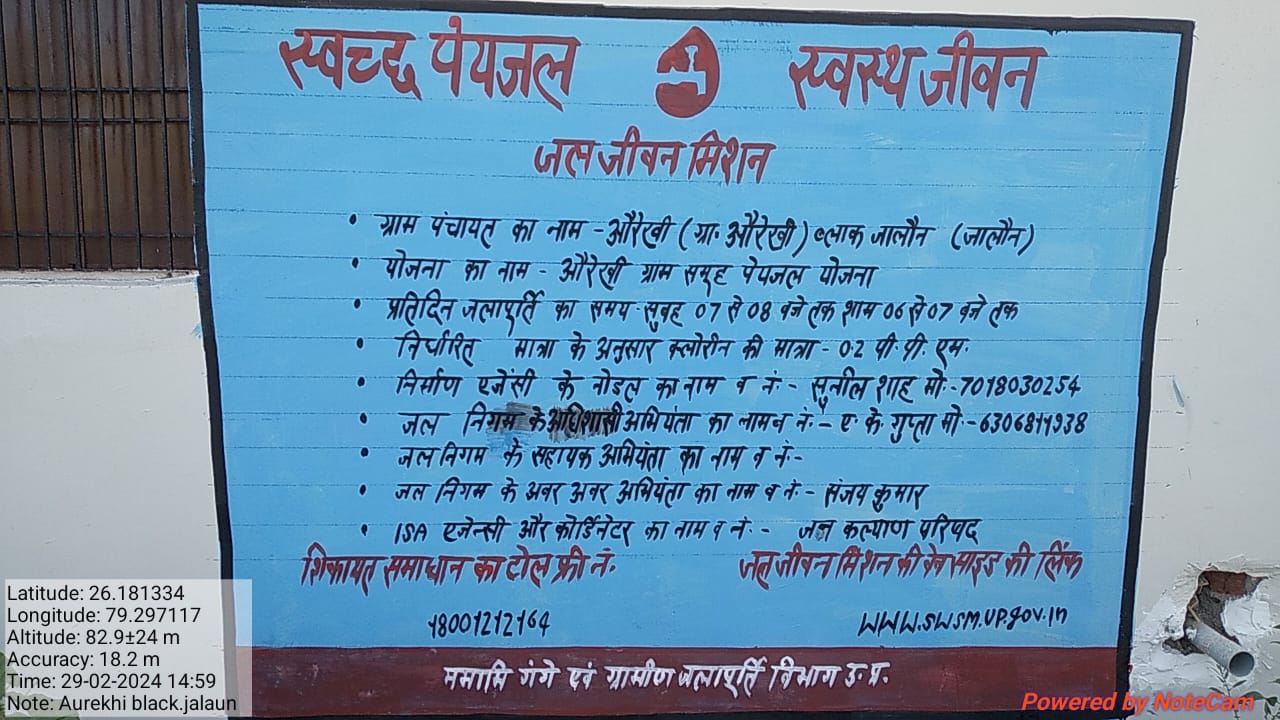 स्वच्छ पेयजल स्वस्थ जीवन
जल जीवन मिशन
• ग्राम पंचायत का नाम - औरेखी (ग्रा. औरेखी) ब्लाक जालौन (जालौन)
• योजना का नाम - औरेखी ग्राम समूह पेयजल योजना
• प्रतिदिन जलापूर्ति का समय - सुबह 07 से 08 बजे तक शाम 06 से 07 बजे तक
• निर्धारित मात्रा के अनुसार क्लोरीन की मात्रा - 0.2 पी. पी. एम.
• निर्माण एजेंसी के नोडल का नाम व नं:- सुनील शाह मो:-7018030254
• जल निगम के अधिशासी अभियंता का नाम व नं:- ए. के. गुप्ता मो:-6306811938
• जल निगम के सहायक अभियंता का नाम व नं:-
• जल निगम के अवर अवर अभियंता का नाम व नं:- संजय कुमार
• ISA एजेन्सी और कोर्डिनेटर का नाम व नं:- जन कल्याण परिषद
शिकायत समाधान का टोल फ्री नं. जल जीवन मिशन की वेब साइड की लिंक
18001212164 www.swsm.up.gov.in
नमामि गंगे एवं ग्रामीण जलापूर्ति विभाग उ.प्र.
Latitude: 26.181334
Longitude: 79.297117
Altitude: 82.9±24 m
Accuracy: 18.2 m
Time: 29-02-2024 14:59
Note: Aurekhi black.jalaun
Powered by NoteCam